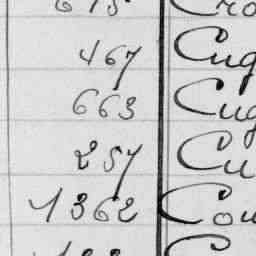 615 Cro
467 Cug
663 Cug
257 Cu
1362 Cou